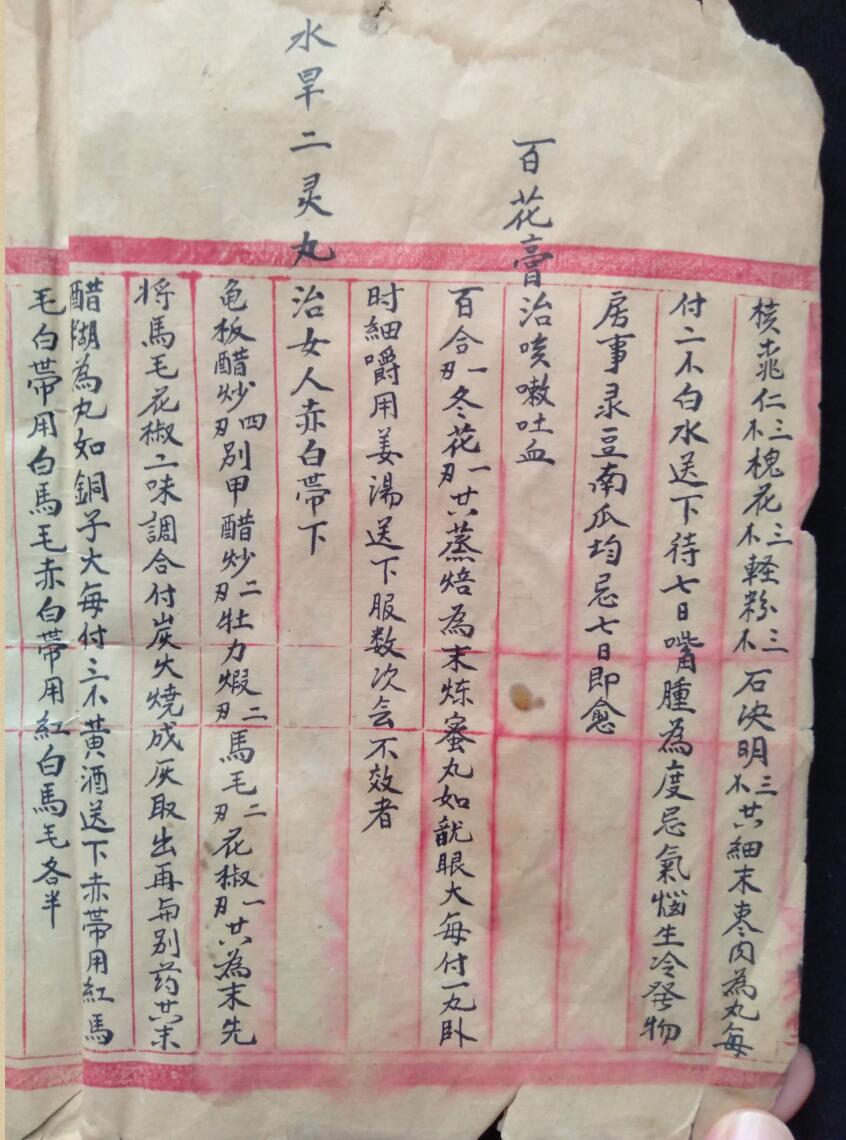 核桃仁三不槐花三不軽粉三不石决明三不共細末枣肉為丸每
付二不白水送下待七日嘴腫為度忌氣惱生冷発物
房事录豆南瓜均忌七日即愈
百花膏治咳嗽吐血
百合一刄冬花一刄共蒸焙為末炼蜜丸如龍眼大每付一丸卧
时細嚼用姜湯送下服数次会不效者
水旱二灵丸治女人赤白帶下
龟板醋炒四刄别甲醋炒二刄牡力煆二刄馬毛二刄花椒一刄共為末先
将馬毛花椒二味調合付炭火燒成灰取出再与别药共末
醋糊為丸如銅子大每付三不黄酒送下赤帶用紅馬
毛白帶用白馬毛赤白帶用紅白馬毛各半